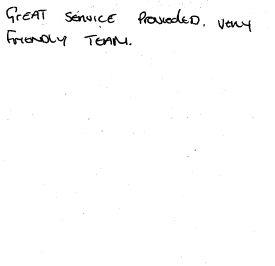 GREAT SERVICE PROVIDED, VERY
FRIENDLY TEAM.